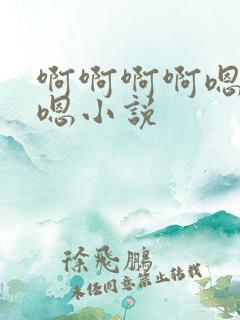 啊啊啊啊嗯
嗯小说
徐飛鵬
未任同意禁止转载